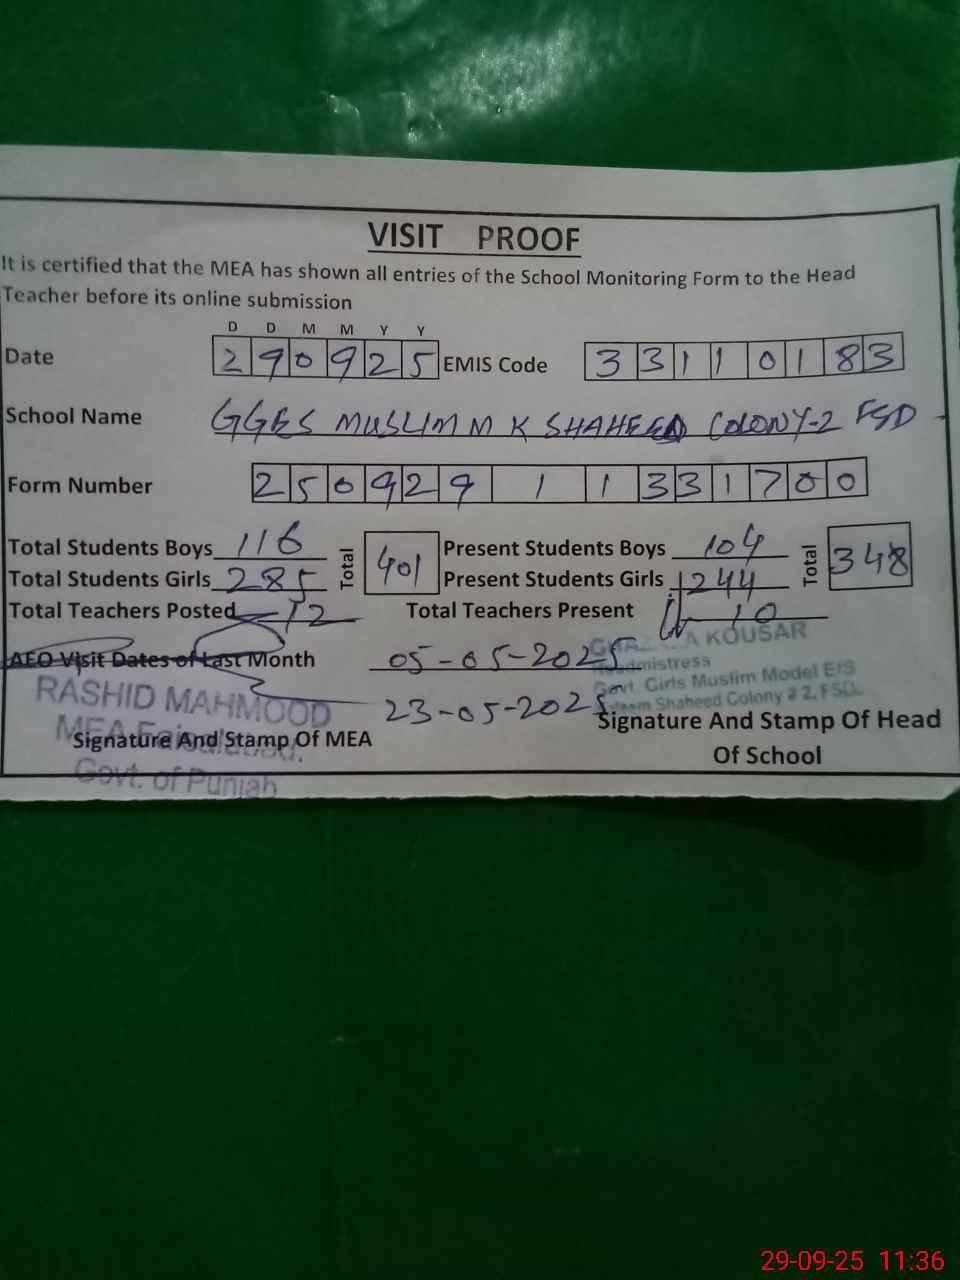 VISIT PROOF
It is certified that the MEA has shown all entries of the School Monitoring Form to the Head
Teacher before its online submission
D D M M Y Y
Date 2 9 0 9 2 5 EMIS Code 3 3 1 1 0 1 8 3
School Name GGES MUSLIM M K SHAHEED COLONY-2 FSD
Form Number 2 5 0 9 2 9 1 1 3 3 1 7 0 0
Total Students Boys 116 Total 401 Present Students Boys 104 Total 348
Total Students Girls 285 Present Students Girls 244
Total Teachers Posted 12 Total Teachers Present 10
AEO Visit Dates of Last Month 05-05-2025
23-05-2025
KOUSAR
Headmistress
Govt. Girls Muslim Model E/S
Shaheed Colony # 2, FSD.
RASHID MAHMOOD
MEA Faisalabad.
Govt. of Punjab
Signature And Stamp Of MEA
Signature And Stamp Of Head
Of School
29-09-25 11:36